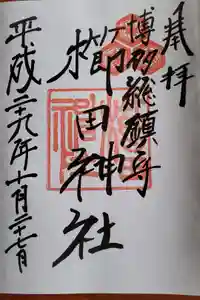 奉拝
博多総鎮守
櫛田神社
平成二十九年十一月二十七日